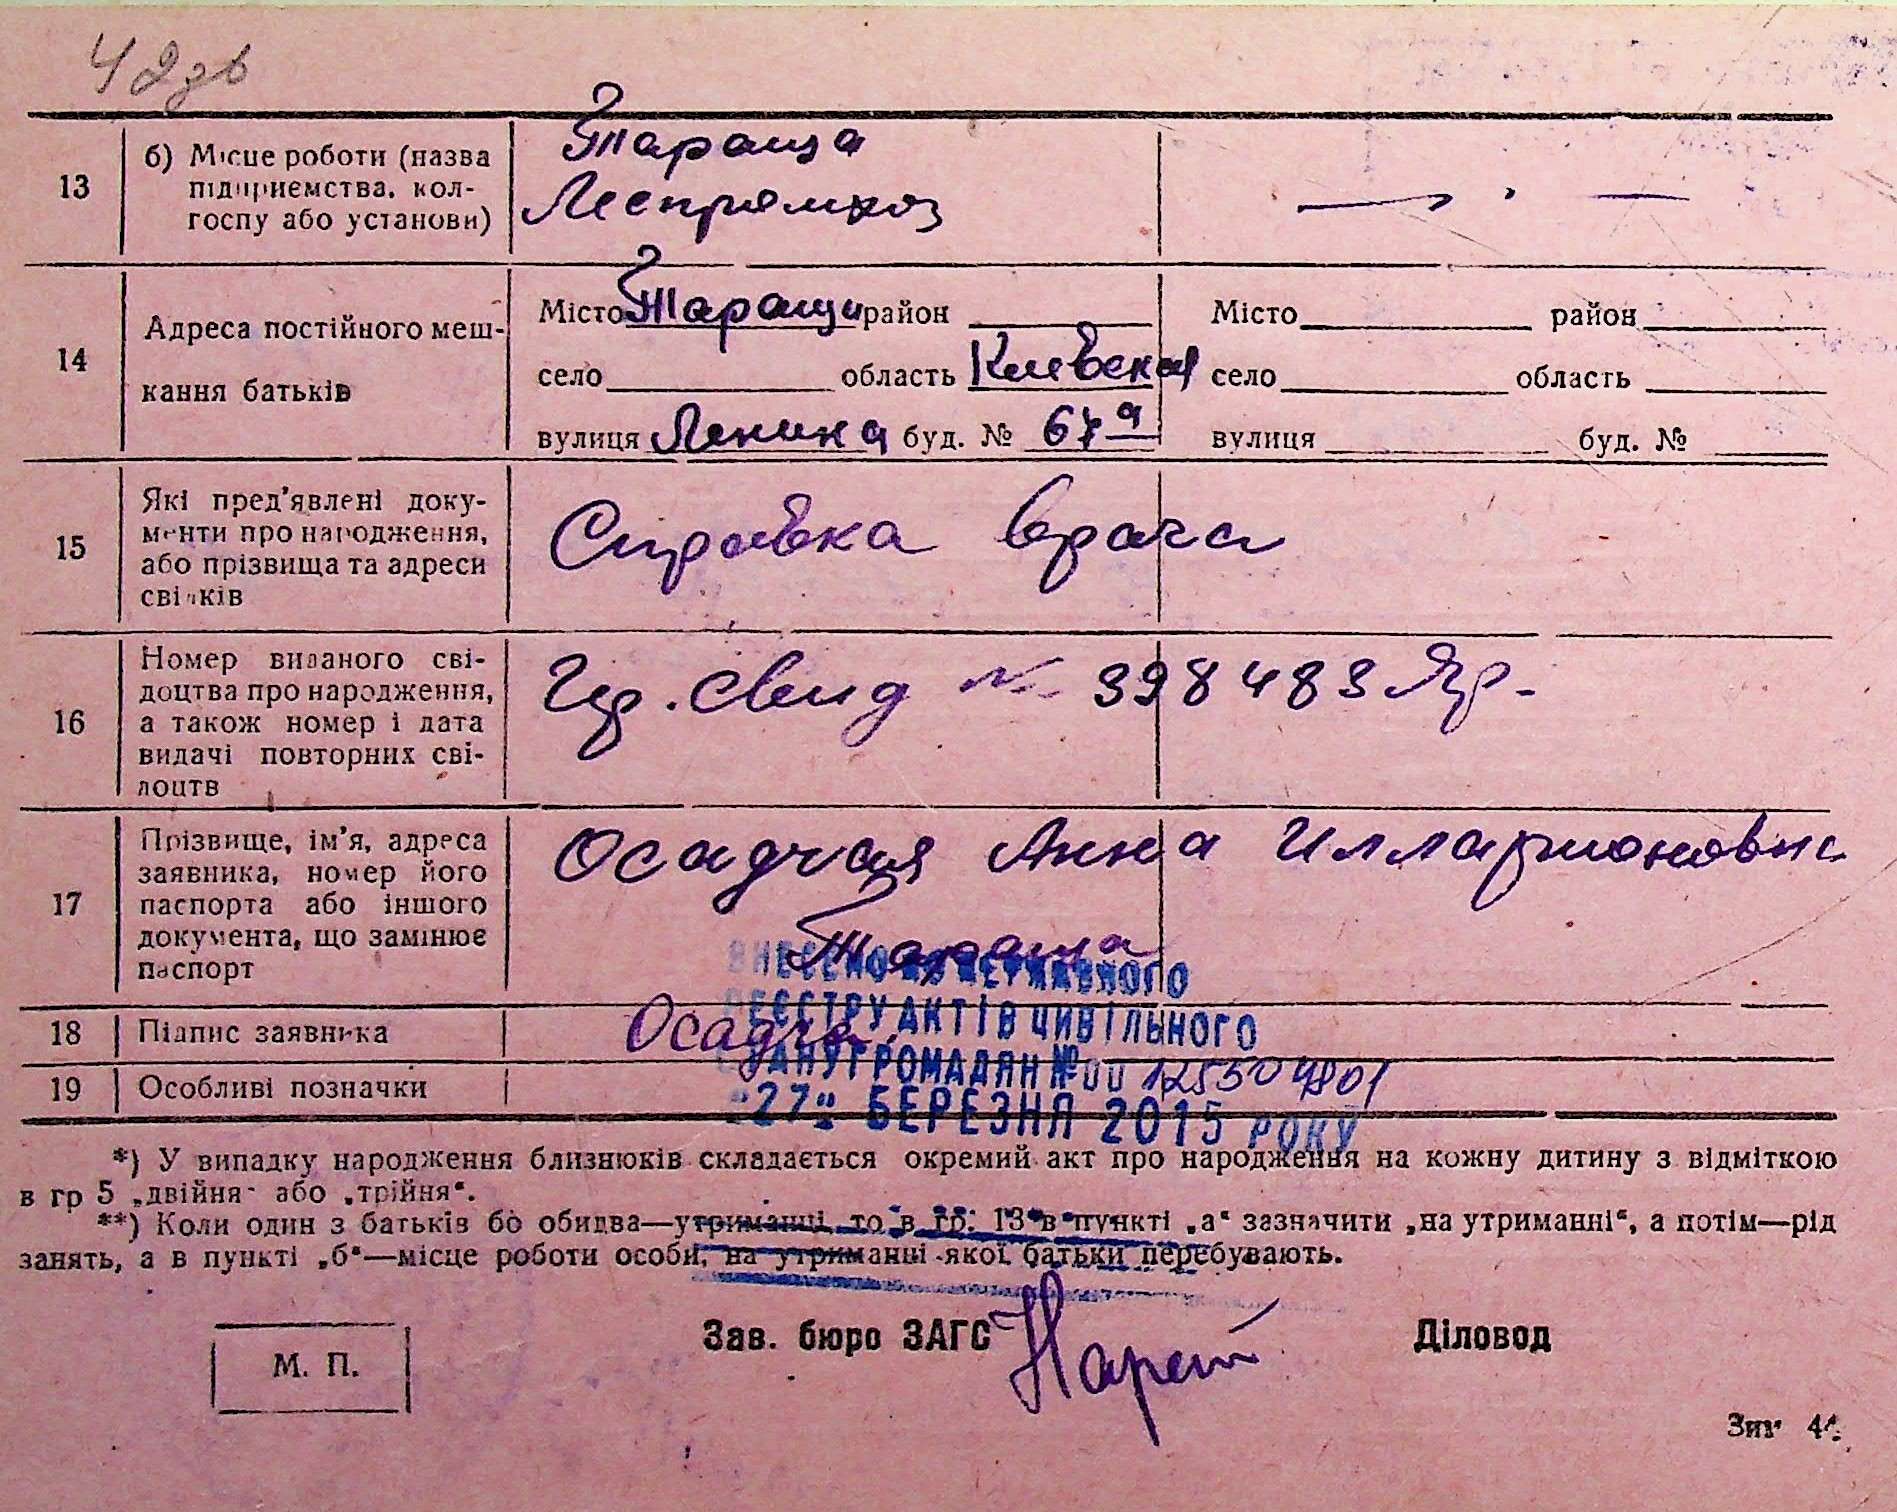 42 зв
13
б) Місце роботи (назва
підприємства, кол-
госпу або установи)
Тараща
Леспромхоз
14
Адреса постійного меш-
кання батьків
Місто Тараща район
село область Киевская
вулиця Ленина буд. № 67а
Місто район
село область
вулиця буд. №
15
Які пред'явлені доку-
менти про народження,
або прізвища та адреси
свідків
Справка врача
16
Номер виданого сві-
доцтва про народження,
а також номер і дата
видачі повторних сві-
доцтв
Гр. свид № 398483
17
Прізвище, ім'я, адреса
заявника, номер його
паспорта або іншого
документа, що замінює
паспорт
Осадчая Анна Илларионовна
Тараща
18
Підпис заявника
Осадча
19
Особливі позначки
ВНЕСЕНО ДО ДЕРЖАВНОГО
РЕЄСТРУ АКТІВ ЦИВІЛЬНОГО
СТАНУ ГРОМАДЯН № 00125504801
"27" БЕРЕЗНЯ 2015 РОКУ
*) У випадку народження близнюків складається окремий акт про народження на кожну дитину з відміткою
в гр 5 „двійня" або „трійня".
**) Коли один з батьків бо обидва—утриманці, то в гр. 13 в пункті „а" зазначити „на утриманні", а потім—рід
занять, а в пункті „б"—місце роботи особи, на утриманні якої батьки перебувають.
Зав. бюро ЗАГС
Діловод
М. П.